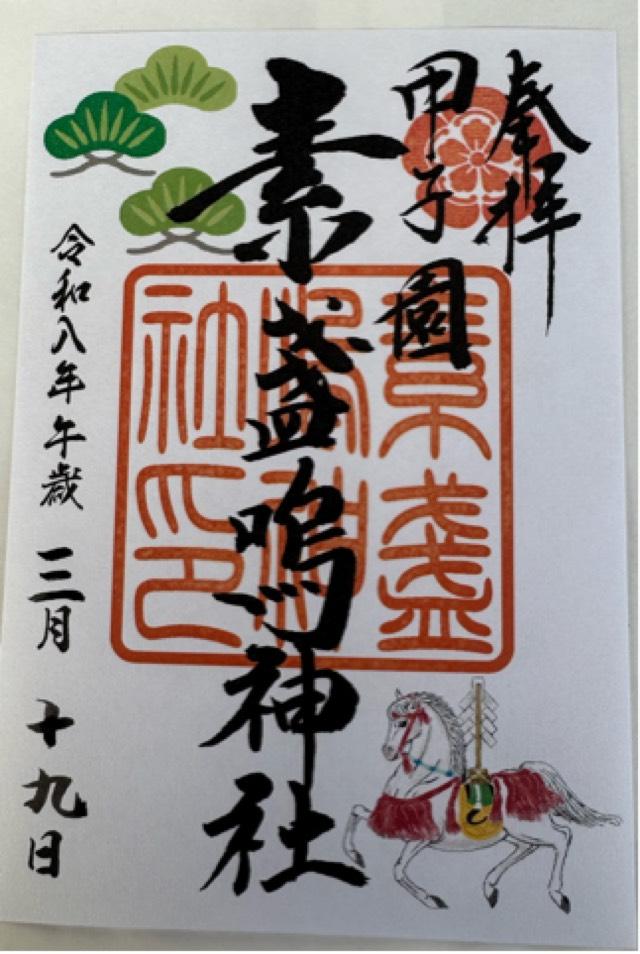 奉拝
甲子園
素盞嗚神社
令和八年午歳 三月 十九日
素盞
嗚神
社印